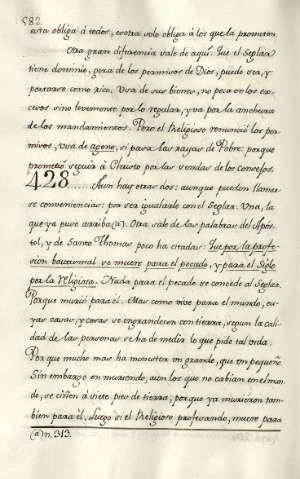 582.
esta obliga à todos; esotra solo obliga à los que la prometen.
Otra gran diferencia sale de aqui. Que el Seglar
tiene dominio, goza de los permisos de Dios, puede usa, y
portarse como rico. Usa de sus bienes, no peca en los ex-
cesos sino levemente por lo regular, y va por la anchura
de los mandamientos. Pero el Religioso renunciò los per-
misos, usa de ageno, si pasa las rayas de Pobre: porque
prometiò seguir à Christo por las sendas de los Consejos.
428..... Aun hay otras dos: aunque pueden llamar-
se conveniencias; por ser igualarle con el Seglar. Una, la
que ya puse arriba (a). Otra sale de las palabras del Apos-
tol, y de Santo Thomas poco ha citadas: Que por la profe-
sion bautismal se muere para el pecado, y para el Siglo
por la Religiosa. Nada para el pecado se concede al Seglar.
Porque muriò para el. Mas como vive para el mundo, cu-
yas casas, y cosas se engrandecen con tierra, segun la cali-
dad de las personas se ha de medir lo que pide tal vida.
Por que mucho mas ha menester un grande, que un pequeño.
Sin embargo en muriendo, aun los que no cabian en el mun-
do, se ciñen à siete pies de tierra; porque ya murieron tam-
bien para èl. Luego si el Religioso profesando, muere para
(a) n. 313.